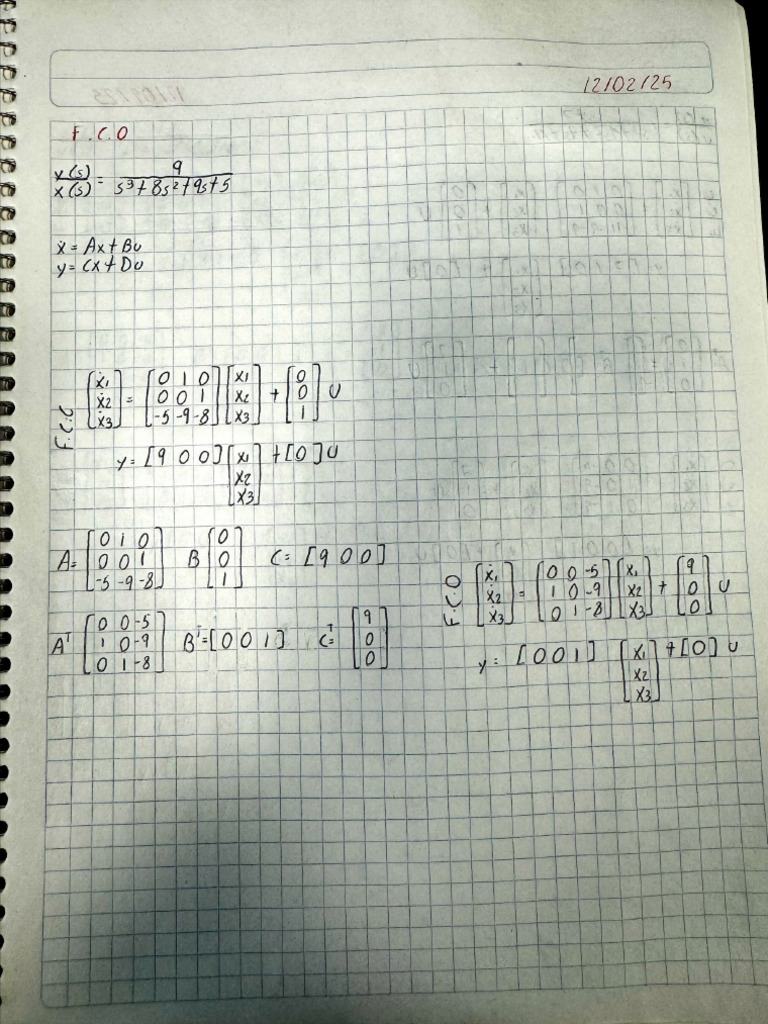 12/02/25
F.C.O
y(s)/x(s) = 9/(s³+8s²+9s+5)
ẋ = Ax+Bu
y = Cx+Du
F.C.C [ẋ1 ẋ2 ẋ3] = [0 1 0; 0 0 1; -5 -9 -8] [x1 x2 x3] + [0 0 1] U
y = [9 0 0] [x1 x2 x3] + [0] U
A = [0 1 0; 0 0 1; -5 -9 -8] B [0 0 1] C = [9 0 0]
Aᵀ [0 0 -5; 1 0 -9; 0 1 -8] Bᵀ = [0 0 1] Cᵀ = [9 0 0]
F.C.O [ẋ1 ẋ2 ẋ3] = [0 0 -5; 1 0 -9; 0 1 -8] [x1 x2 x3] + [9 0 0] U
y = [0 0 1] [x1 x2 x3] + [0] U